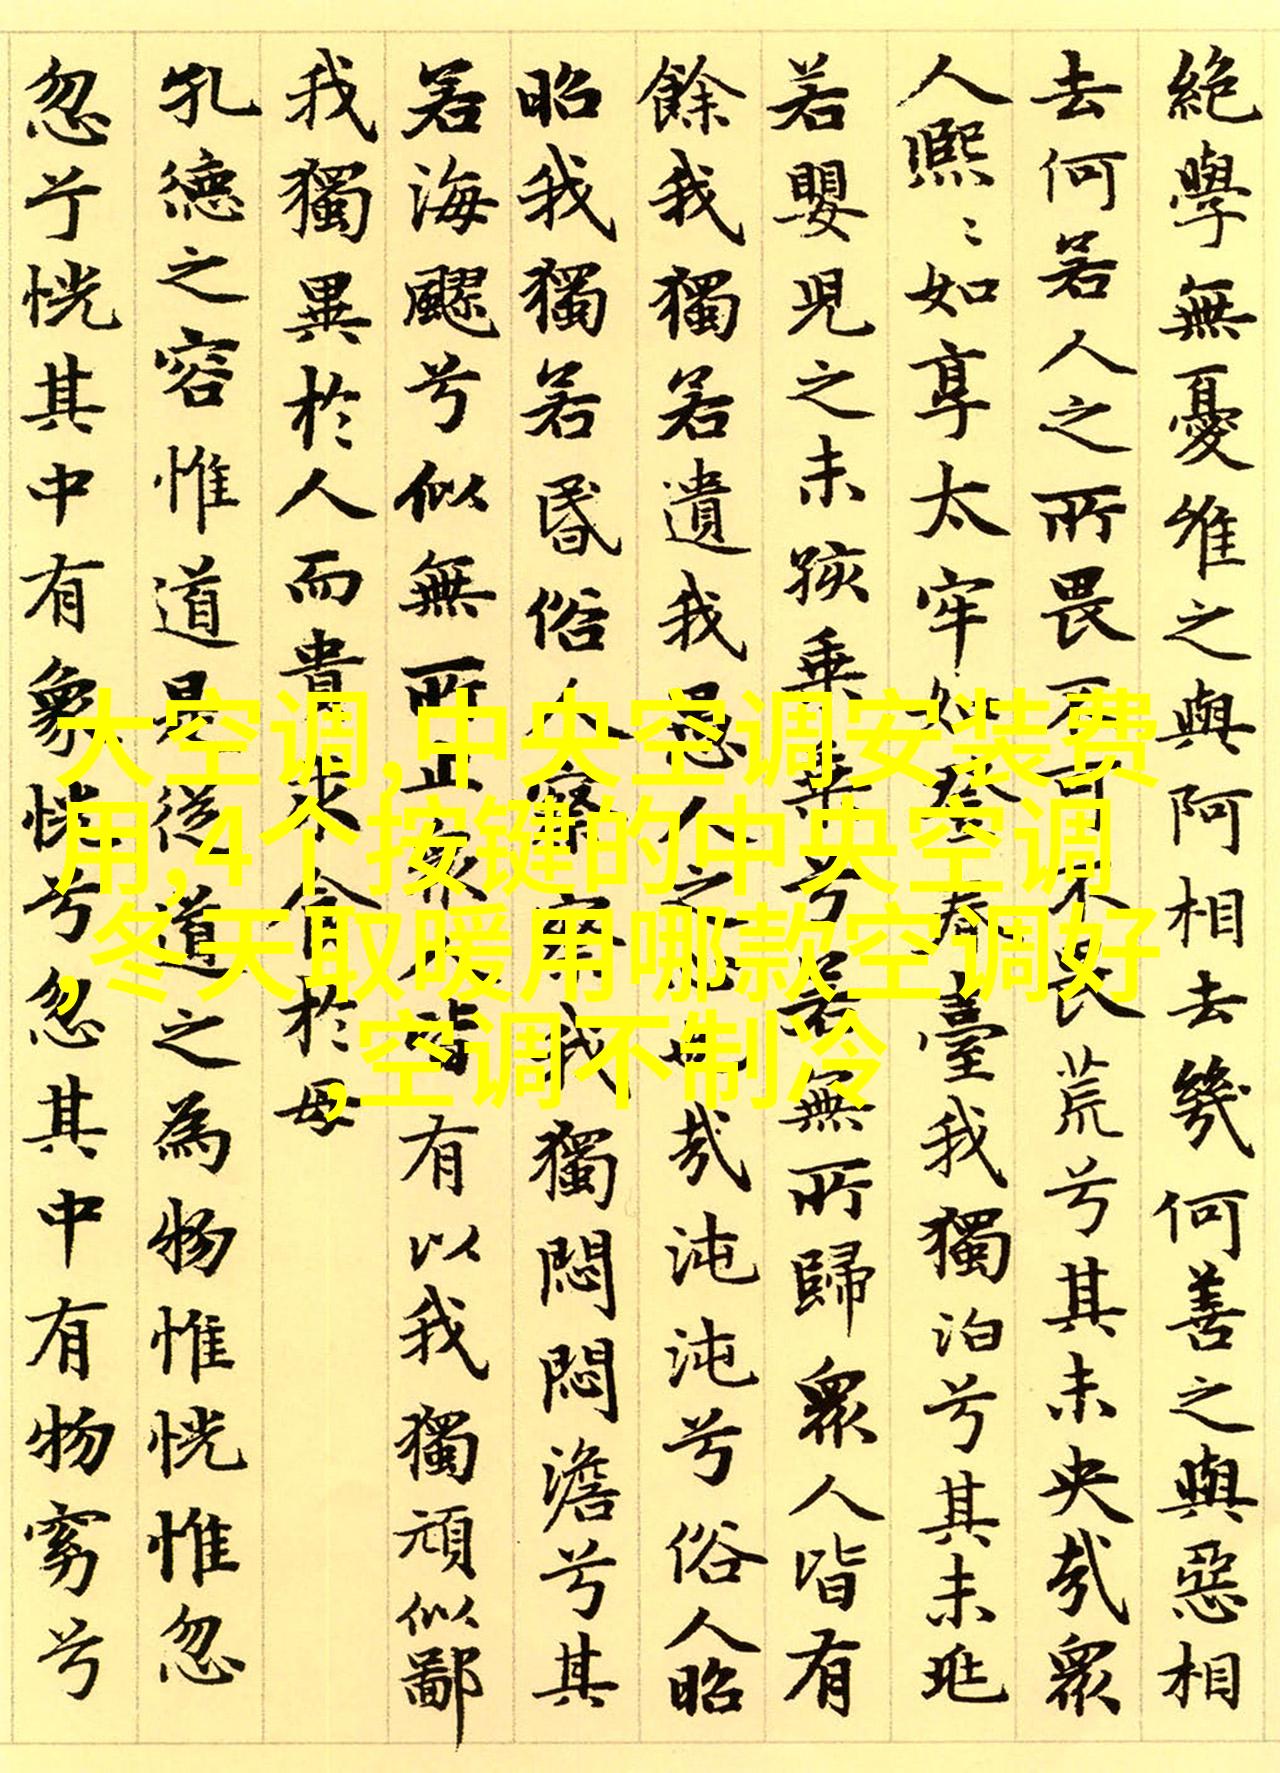 絶學無憂唯之與阿相去幾何善之與惡相
去何若人之所畏不可不畏荒兮其未央哉眾
人熙〻如享太牢如登春臺我獨泊兮其未兆
若嬰兒之未孩乗乗兮若無所歸眾人皆有
餘我獨若遺我愚人之心也哉沌沌兮俗人昭
昭我獨若昏俗人察察我獨悶悶澹兮其
若海飂兮似無所止眾人皆有以我獨頑似鄙
我獨異於人而貴求食於母
孔德之容惟道是從道之為物惟恍惟忽
忽兮恍其中有象恍兮忽其中有物窈兮
大空调,中央空调安装费
用,4个按键的中央空调
,冬天取暖用哪款空调好
,空调不制冷